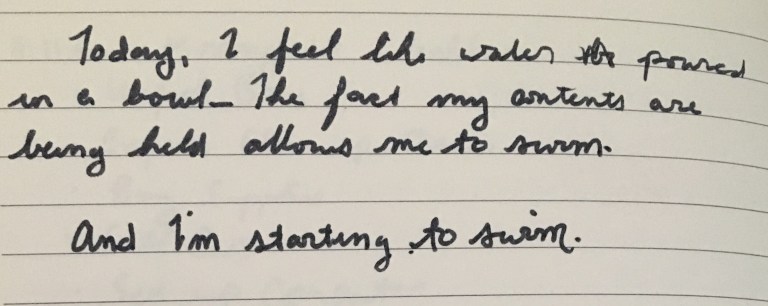 Today, I feel like water poured
in a bowl. The fact my contents are
being held allows me to swim.
And I'm starting to swim.